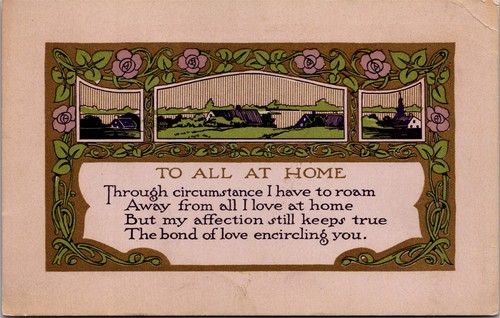 TO ALL AT HOME
Through circumstance I have to roam
Away from all I love at home
But my affection still keeps true
The bond of love encircling you.